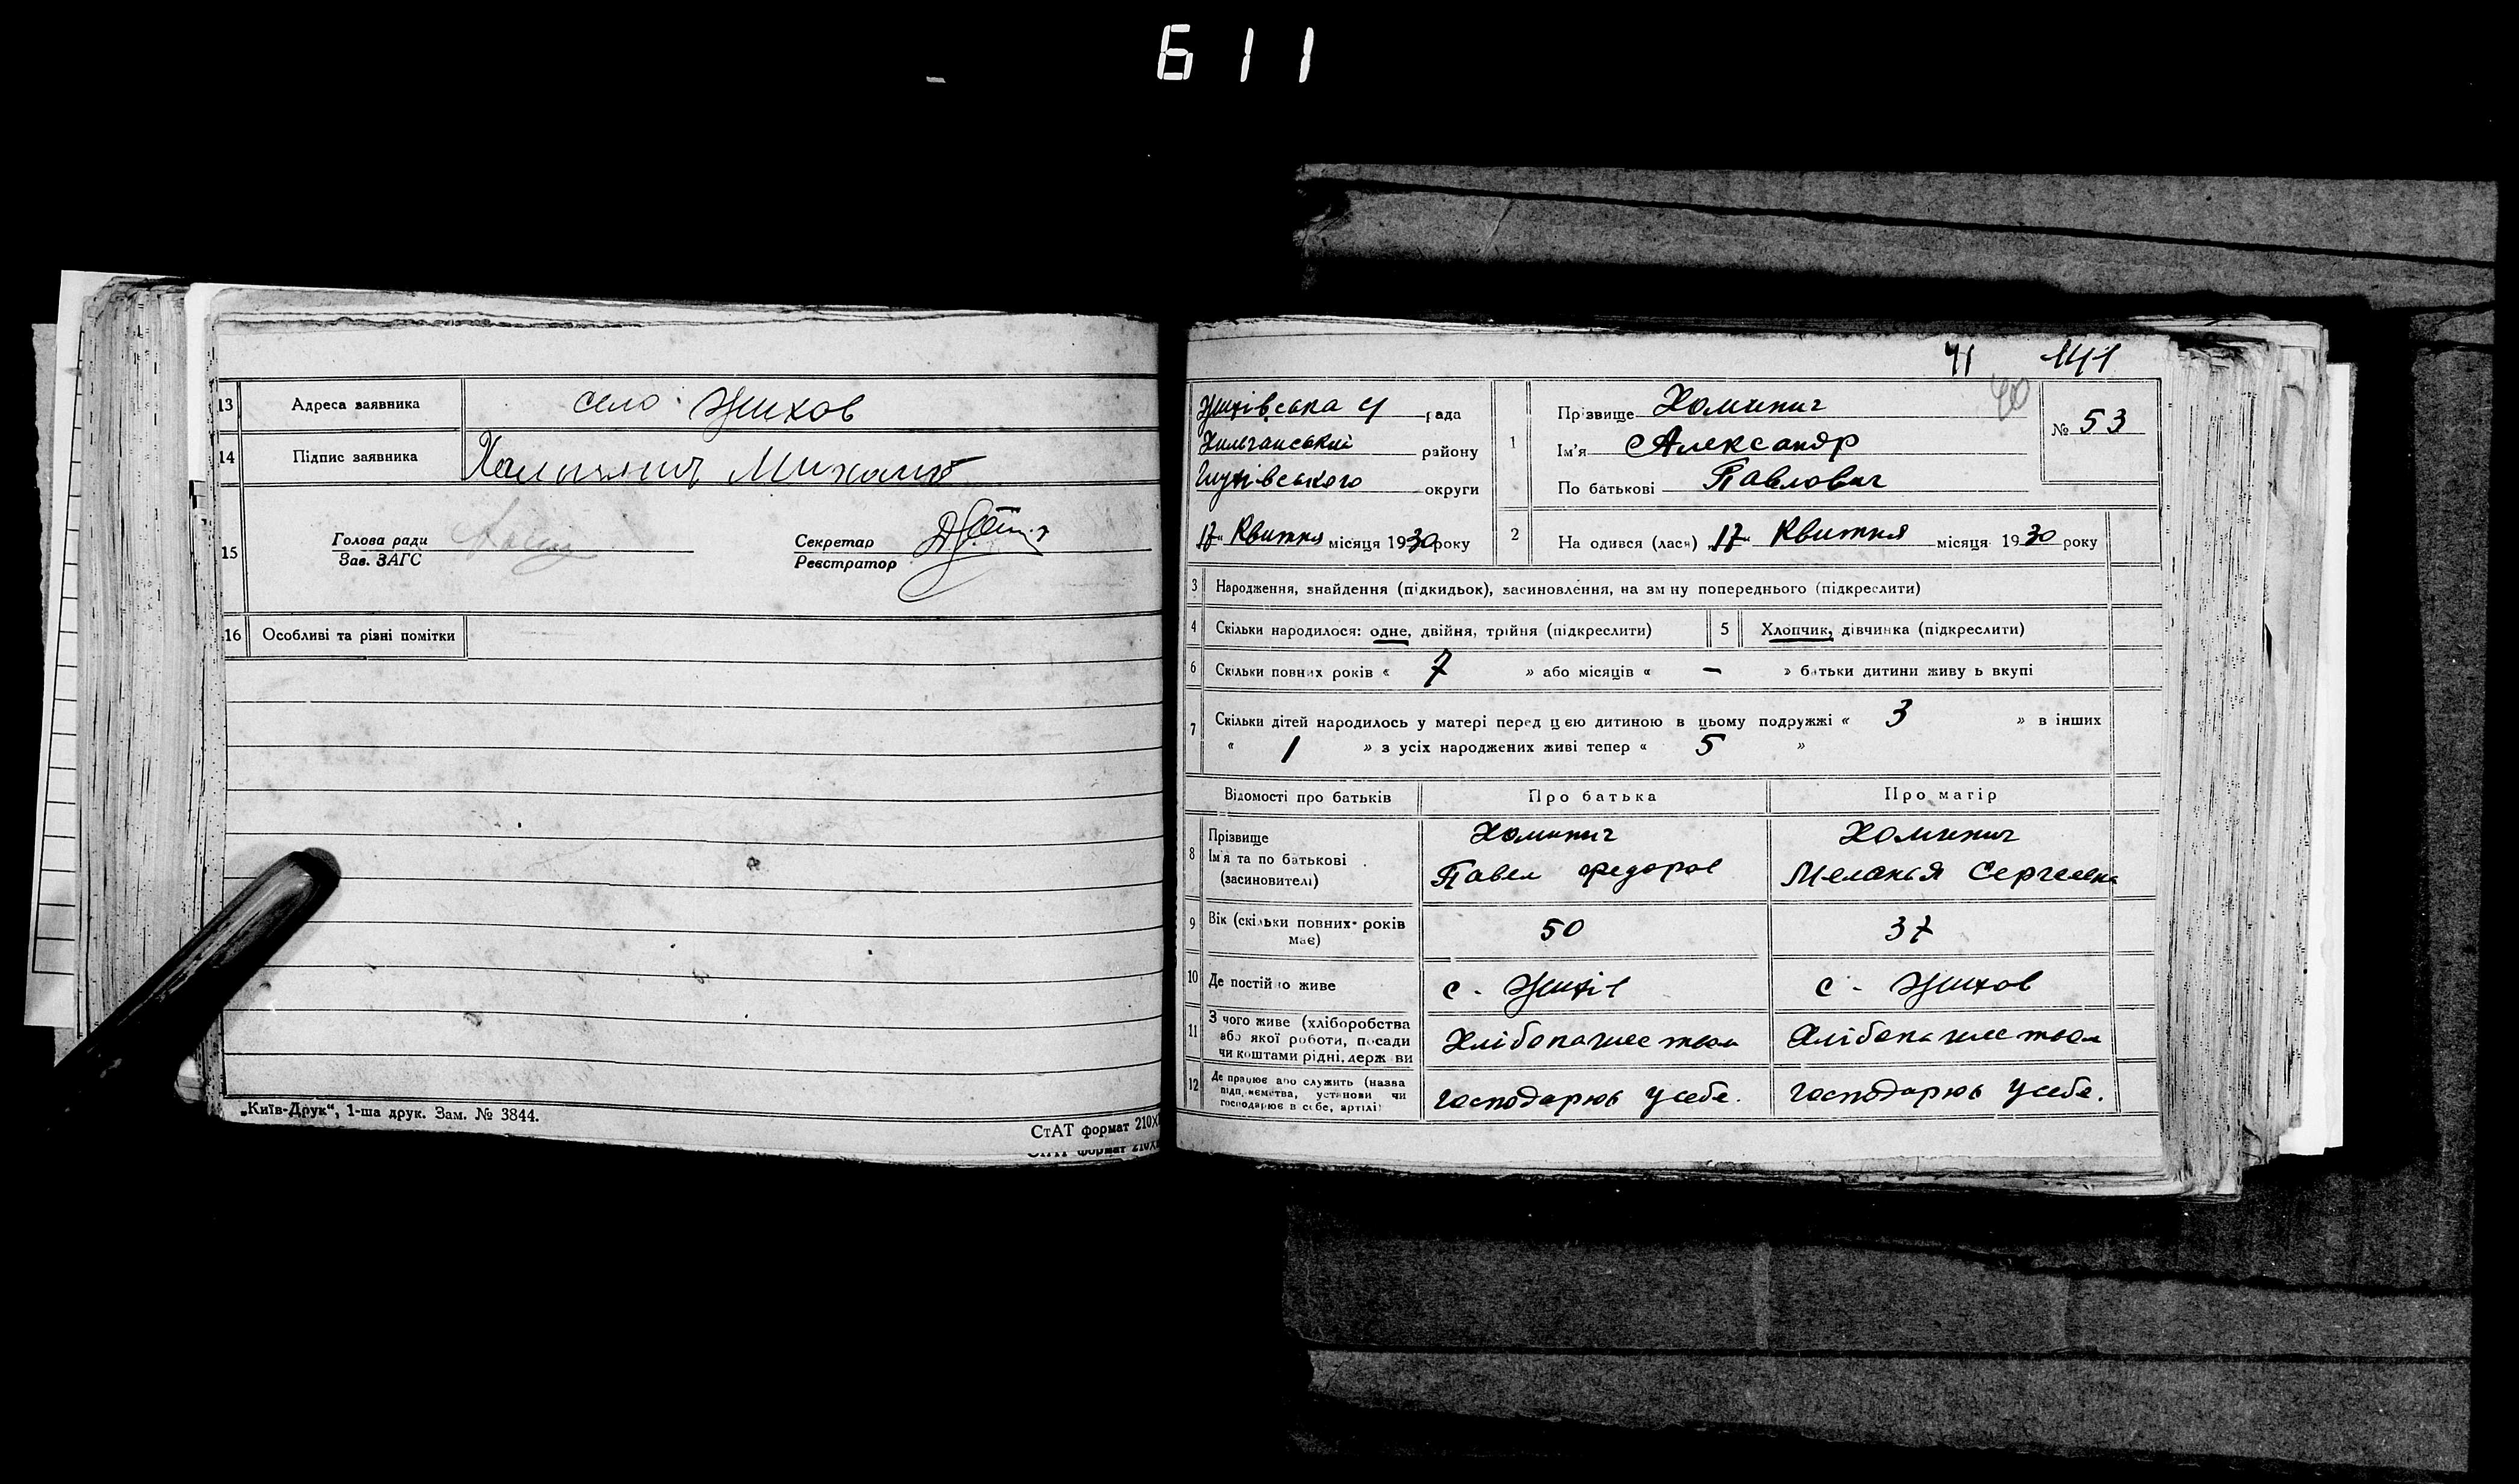 611
13 Адреса заявника село Жихов
14 Підпис заявника Михаил
15 Голова ради
Зав. ЗАГС
Секретар
Реєстратор
16 Особливі та різні помітки
„Київ-Друк“, 1-ша друк. Зам. № 3844.
СтАТ формат 210X
СтАТ формат 210X
71 141
40
Жихівська рада
Хильчанський району
Глухівського округи
17 Квитня місяця 1930 року
1 Прізвище Хоминич
Ім'я Александр
По батькові Павлович
№ 53
2 На одився (лася) „17“ Квитня місяця 1930 року
3 Народження, знайдення (підкидьок), засиновлення, на зм ну попереднього (підкреслити)
4 Скільки народилося: одне, двійня, трійня (підкреслити)
5 Хлопчик, дівчинка (підкреслити)
6 Скільки повних років « 7 » або місяців « – » батьки дитини живу ь вкупі
7 Скільки дітей народилось у матері перед цією дитиною в цьому подружжі « 3 » в інших
« 1 » з усіх народжених живі тепер « 5 »
Відомості про батьків Про батька Про матір
8 Прізвище Хоминич Хоминич
Ім'я та по батькові Павел Федоров Меланья Сергеевна
(засиновителі)
9 Вік (скільки повних років 50 37
має)
10 Де постійно живе с. Жихів с. Жихов
11 З чого живе (хліборобства
або якої роботи, посади Хлібопашеством Хлібопашеством
чи коштами рідні, держ ви
12 Де працює або служить (назва
підприємства, установи чи господарюв у себе. господарюв у себе.
господарює в себе, артілі)